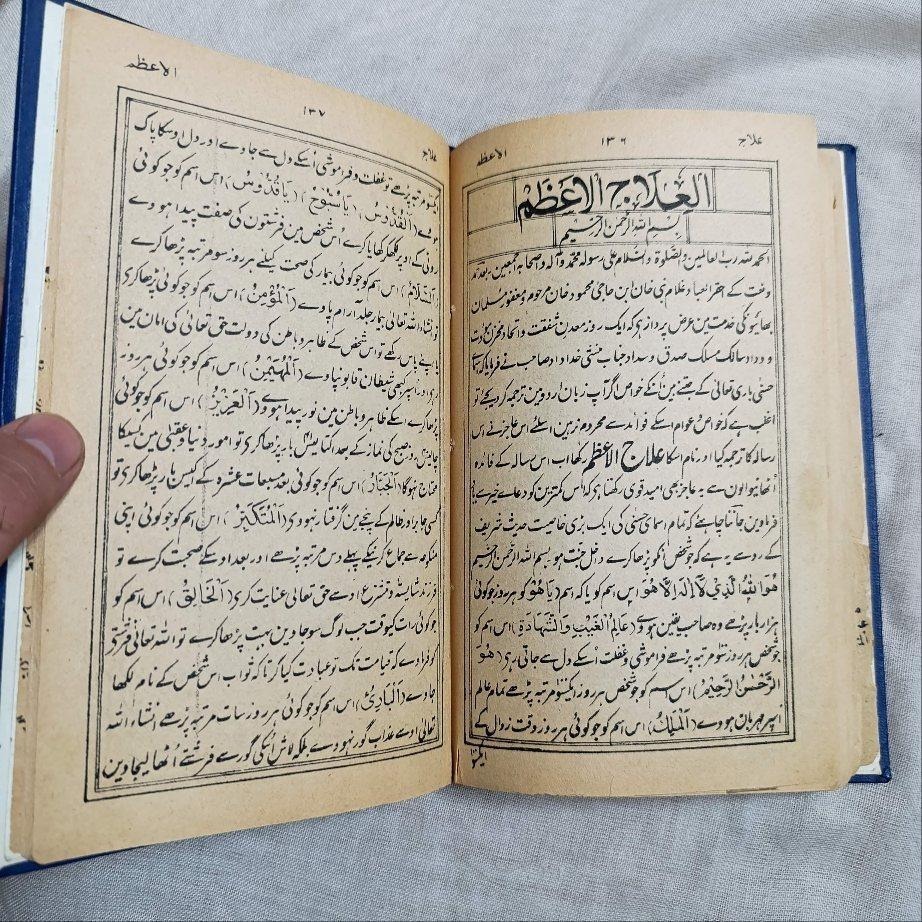 علاج
١٣٦
الاعظم
العلاج الاعظم
بسم اللہ الرحمن الرحیم
الحمد للہ رب العالمین والصلوٰۃ والسلام علی رسولہ محمد وآلہ واصحابہ اجمعین بعد حمد
ونعت کے احقر العباد غلام نبی خان ابن حاجی محمود خان مرحوم ومغفور مسلمان
بھائیونکی خدمت مین عرض پرداز ہی کہ ایک روز معدن شفقت واتحاد مخزن
ووداد سالک مسلک صدق وسداد جناب منشی خداداد صاحب نے فرمایا کہ اسما
حسنیٰ باری تعالیٰ کے جتنے ہین اُنکے خواص اگر آپ زبان اردو مین ترجمہ کر دیجئے تو
اغلب ہے کہ خواص وعوام اسکے فوائد سے محروم نرہین اسلئے اس عاجز نے اس
رسالہ کا ترجمہ کیا اور نام اسکا علاج الاعظم رکھا اب اس رسالہ کے فائدہ
اُٹھانیوالون سے یہ عاجز بھی امید قوی رکھتا ہی کہ اس کمترین کو دعاے خیر سے یاد
فرماوین جاننا چاہئے کہ تمام اسمای حسنیٰ کی ایک بڑی خاصیت حدیث شریف
کے رو سے یہ ہے کہ جو شخص انکو پڑھا کرے داخل جنت ہو بسم اللہ الرحمن الرحیم
ھُوَ اللہُ الَّذِی لَا اِلٰہَ اِلَّا ھُوَ اس اسم کو یا کہ اسم (یَا ھُوَ) کو ہر روز جو کوئی
ہزار بار پڑھے وہ صاحب یقین ہووے (عَالِمُ الْغَیْبِ وَالشَّہَادَۃِ) اس اسم کو
جو شخص ہر روز سو مرتبہ پڑھے فراموشی وغفلت اُسکے دل سے جاتی رہی (ھُوَ
الرَّحْمٰنُ الرَّحِیْمُ) اس اسم کو جو شخص ہر روز ایکسو مرتبہ پڑھے تمام عالم
اُسپر مہربان ہووے (اَلْمَلِکُ) اس اسم کو جو کوئی ہر روز وقت زوال کے
ایکسو
علاج
١٣٧
الاعظم
ایکسو مرتبہ پڑھے تو غفلت وفراموشی اُسکے دل سے جاوے اور دل اوسکا پاک
ہووے (اَلْقُدُّوْسُ) (یَا سُبُّوْحُ) (یَا قُدُّوْسُ) اس اسم کو جو کوئی
روٹی کے اوپر لکھکر کھایا کرے اُس شخص مین فرشتون کی صفت پیدا ہووے
(اَلسَّلَامُ) اس اسم کو جو کوئی بیمار کی صحت کیلئے ہر روز سو مرتبہ پڑھا کرے
انشاء اللہ تعالیٰ بیمار جلد آرام پاوے (اَلْمُؤْمِنُ) اس اسم کو جو کوئی پڑھا کری
یا اپنے پاس رکھے تو اس شخص کے ظاہر وباطن کی دولت حق تعالیٰ کی امان مین
رہی اور اسپر کبھی شیطان قابو نپاوے (اَلْمُھَیْمِنُ) اس اسم کو جو کوئی ہر روز
پڑھا کرے اسکے ظاہر وباطن مین نور پیدا ہووے (اَلْعَزِیْزُ) اس اسم کو جو کوئی
چالیس روز صبح کی نماز کے بعد اکتالیس بار پڑھا کری تو امور دنیا وعقبیٰ مین کسیکا
محتاج نہوگا (اَلْجَبَّارُ) اس اسم کو جو کوئی بعد مسبعات عشرہ کے اکیس بار پڑھا کری تو
کسی جابر اور ظالم کے پنجے مین گرفتار نہووی (اَلْمُتَکَبِّرُ) اس اسم کو جو کوئی اپنی
منکوحہ سے جماع کرنیکے پہلے دس مرتبہ پڑھے اور بعد اوسکے صحبت کرے تو
فرزند شایستہ وتمتع اوسے حق تعالیٰ عنایت کری (اَلْخَالِقُ) اس اسم کو
جو کوئی رات کیوقت جب لوگ سو جاوین بہت پڑھا کرے تو اللہ تعالیٰ فرشتہ
کو فرماوے کہ قیامت تک تو عبادت کیا کر تا کہ ثواب اس شخص کے نام لکھا
جاوے (اَلْبَارِئُ) اس اسم کو جو کوئی ہر روز سات مرتبہ پڑھے انشاء اللہ
تعالیٰ اوسے عذاب گور نہووے بلکہ لاش اُسکی گور سے فرشتے اُٹھا لیجاوین